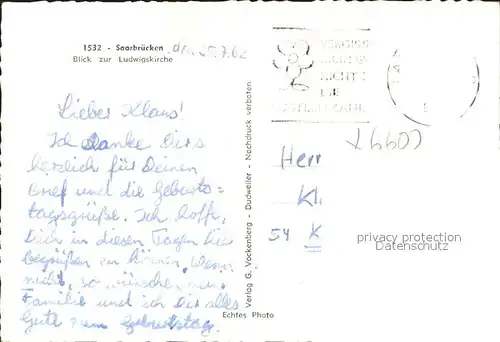 1532 - Saarbrücken, den 25.7.62
Blick zur Ludwigskirche
Lieber Klaus!
Ich danke Dir
herzlich für Deinen
Brief und die Geburts-
tagsgrüße. Ich hoffe,
Dich in diesen Tagen hier
begrüßen zu können. Wenn
nicht, so wünschen meine
Familie und ich Dir alles
Gute zum Geburtstag.
Echtes Photo
Verlag G. Vockenberg - Dudweiler - Nachdruck verboten
VERGISS
NICHT
DIE
POSTLEITZAHL
Herr
Kl.
54 K
privacy protection
Datenschutz